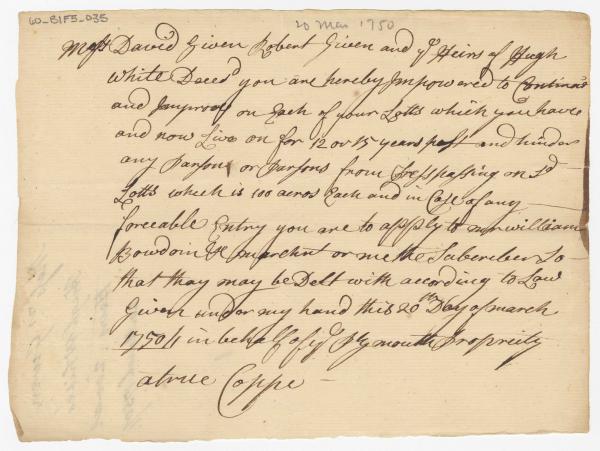 60_B1F5_035
20 Mar 1750
Messrs David Given Robert Given and ye Heirs of Hugh
White Decesd you are hereby Impowered to Continue
and Improve on Each of your Lotts which you have
and now Live on for 12 or 15 years past and hinder
any Parson or Parsons from Tresspassing on sd
Lotts which is 100 acros Each and in Case of any
forceable Entry you are to apply to mr william
Bowdoin marchnt or me the Subcriber So
that thay may be Delt with according to Law
Given undor my hand this 20th Day of march
1750/1 in behalf of ye Plymouth Propreity
a true Coppe